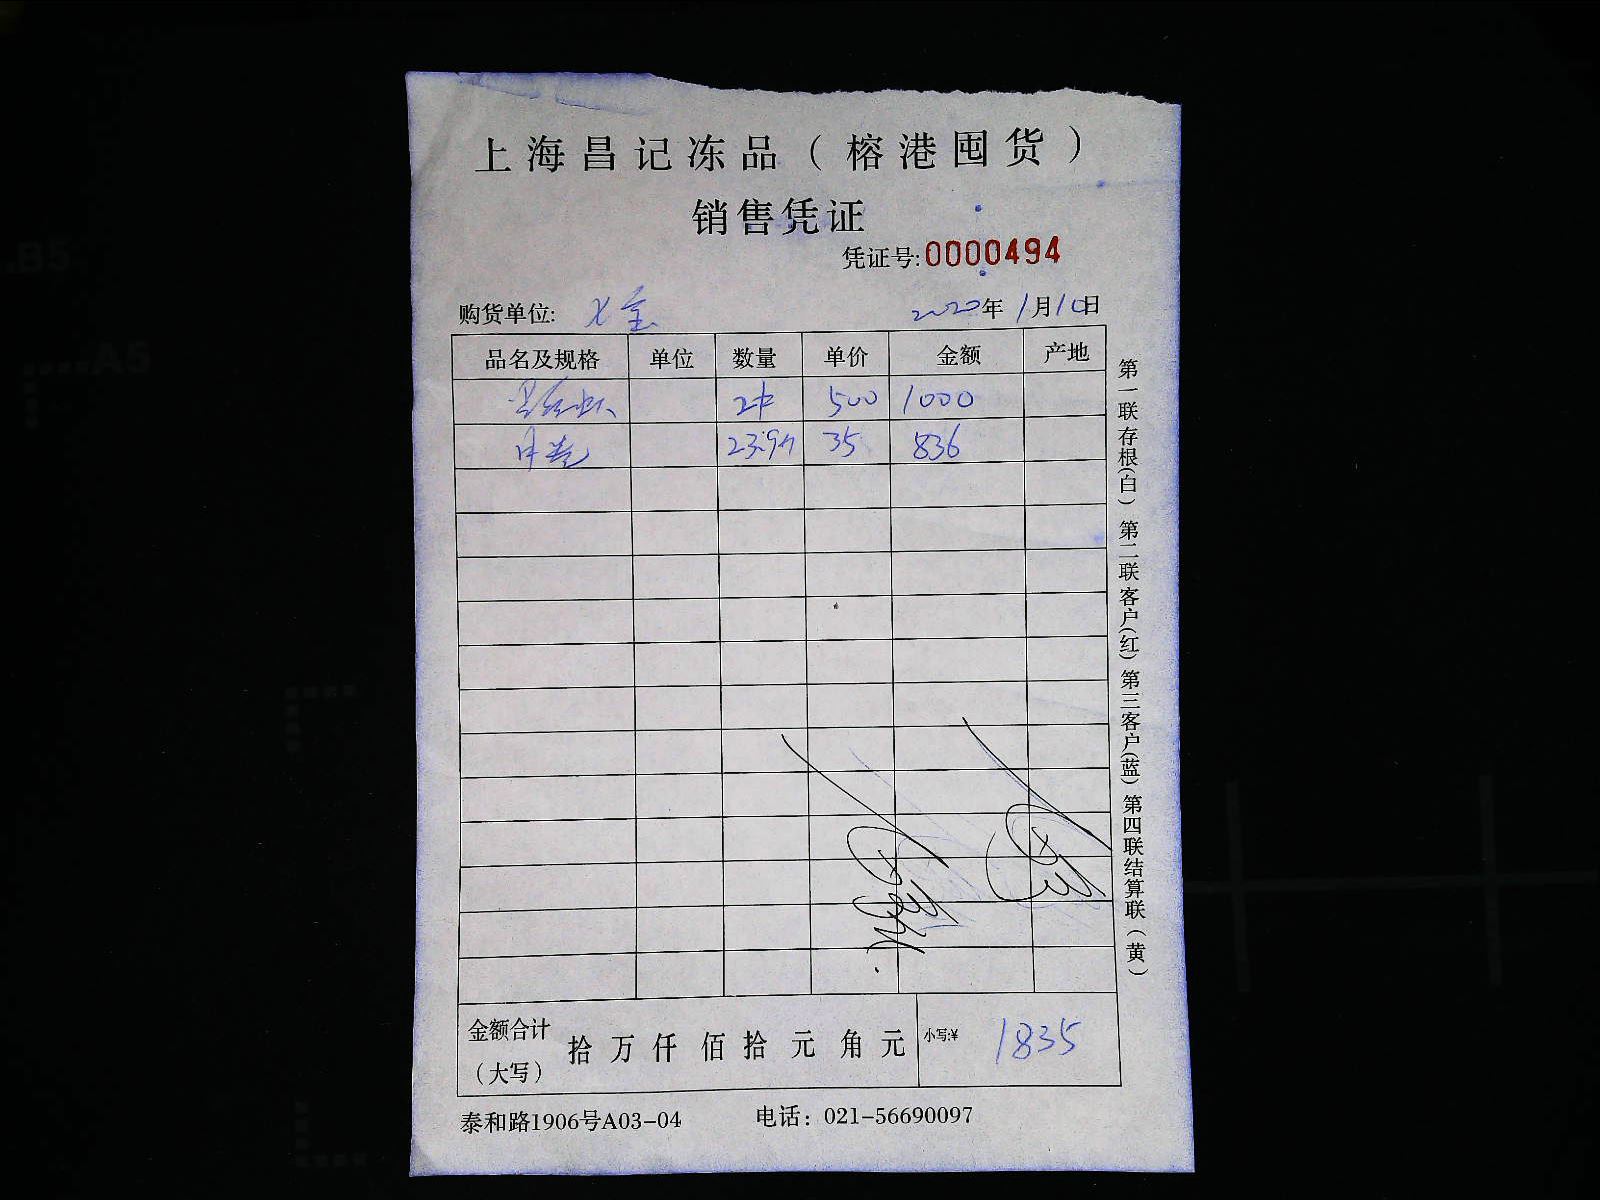 上海昌记冻品（榕港囤货）
销售凭证
凭证号:0000494
购货单位:
2020年1月10日
品名及规格 单位 数量 单价 金额 产地
2件 500 1000
月亮 23.9斤 35 836
金额合计（大写） 拾 万 仟 佰 拾 元 角 元 小写:¥ 1835
泰和路1906号A03-04 电话：021-56690097
第一联存根(白) 第二联客户(红) 第三客户(蓝) 第四联结算联(黄)
.B5
A5